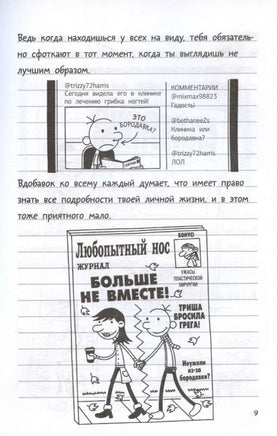 Ведь когда находишься у всех на виду, тебя обязатель-
но сфоткают в тот момент, когда ты выглядишь не
лучшим образом.
@trizzy72harris
Сегодня видела его в клинике
по лечению грибка ногтей!
ЭТО
БОРОДАВКА?
КОММЕНТАРИИ
@mixmax98823
Гадость!
@bethaneeZs
Клиника или
бородавка?
@trizzy72harris
ЛОЛ
Вдобавок ко всему каждый думает, что имеет право
знать все подробности твоей личной жизни, и в этом
тоже приятного мало.
БОНУС!
Любопытный нос
ЖУРНАЛ
УЖАСЫ
ПЛАСТИЧЕСКОЙ
ХИРУРГИИ
БОЛЬШЕ
НЕ ВМЕСТЕ!
ТРИША
БРОСИЛА
ГРЕГА!
Неужели
из-за
бородавки?
9